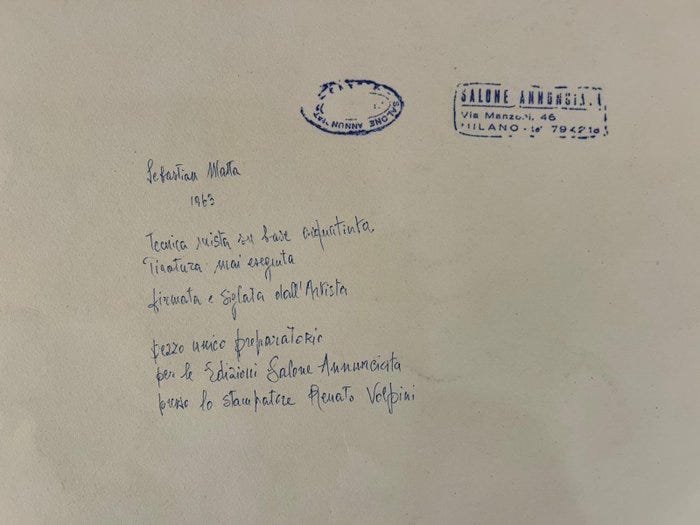 SALONE ANNUNCIATA
SALONE ANNUNCIATA
Via Manzoni, 46
MILANO - tel 794210
Sebastian Matta
1963
Tecnica mista su base acquatinta
Tiratura mai eseguita
firmata e siglata dall'Artista
pezzo unico preparatorio
per le Edizioni Salone Annunciata
presso lo stampatore Renato Volpini